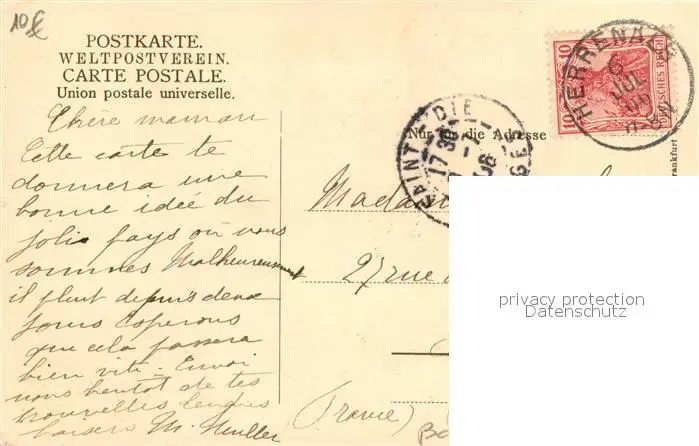 POSTKARTE.
WELTPOSTVEREIN.
CARTE POSTALE.
Union postale universelle.
Chère maman
Cette carte te
donnera une
bonne idée du
joli pays où nous
sommes Malheureusement
il pleut depuis deux
jours Esperons
que cela passera
bien vite. Envoi
nous bentot de tes
nouvelles tendres
baisers M. Muller
10
Nur für die Adresse
SAINT DIE
17 30
VOSGES
HERRENALB
6
JUL
10
10
DEUTSCHES REICH
Frankfurt
Mada
27 rue
(France)
privacy protection
Datenschutz